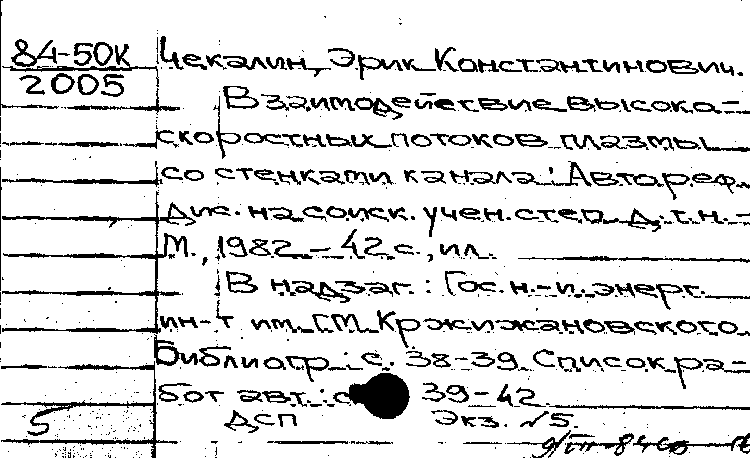 84-50К
2005
Чекалин, Эрик Константинович.
Взаимодействие высока-
скоростных потоков плазмы
со стенками канала: Автореф.
дис. на соиск. учен. степ. д.т.н. -
М., 1982. - 42 с., ил.
В надзаг.: Гос. н.-и. энерг.
ин-т им. Г.М. Кржижановского.
Библиогр.: с. 38-39. Список ра-
бот авт.: с 39-42
ДСП Экз. №5.
5